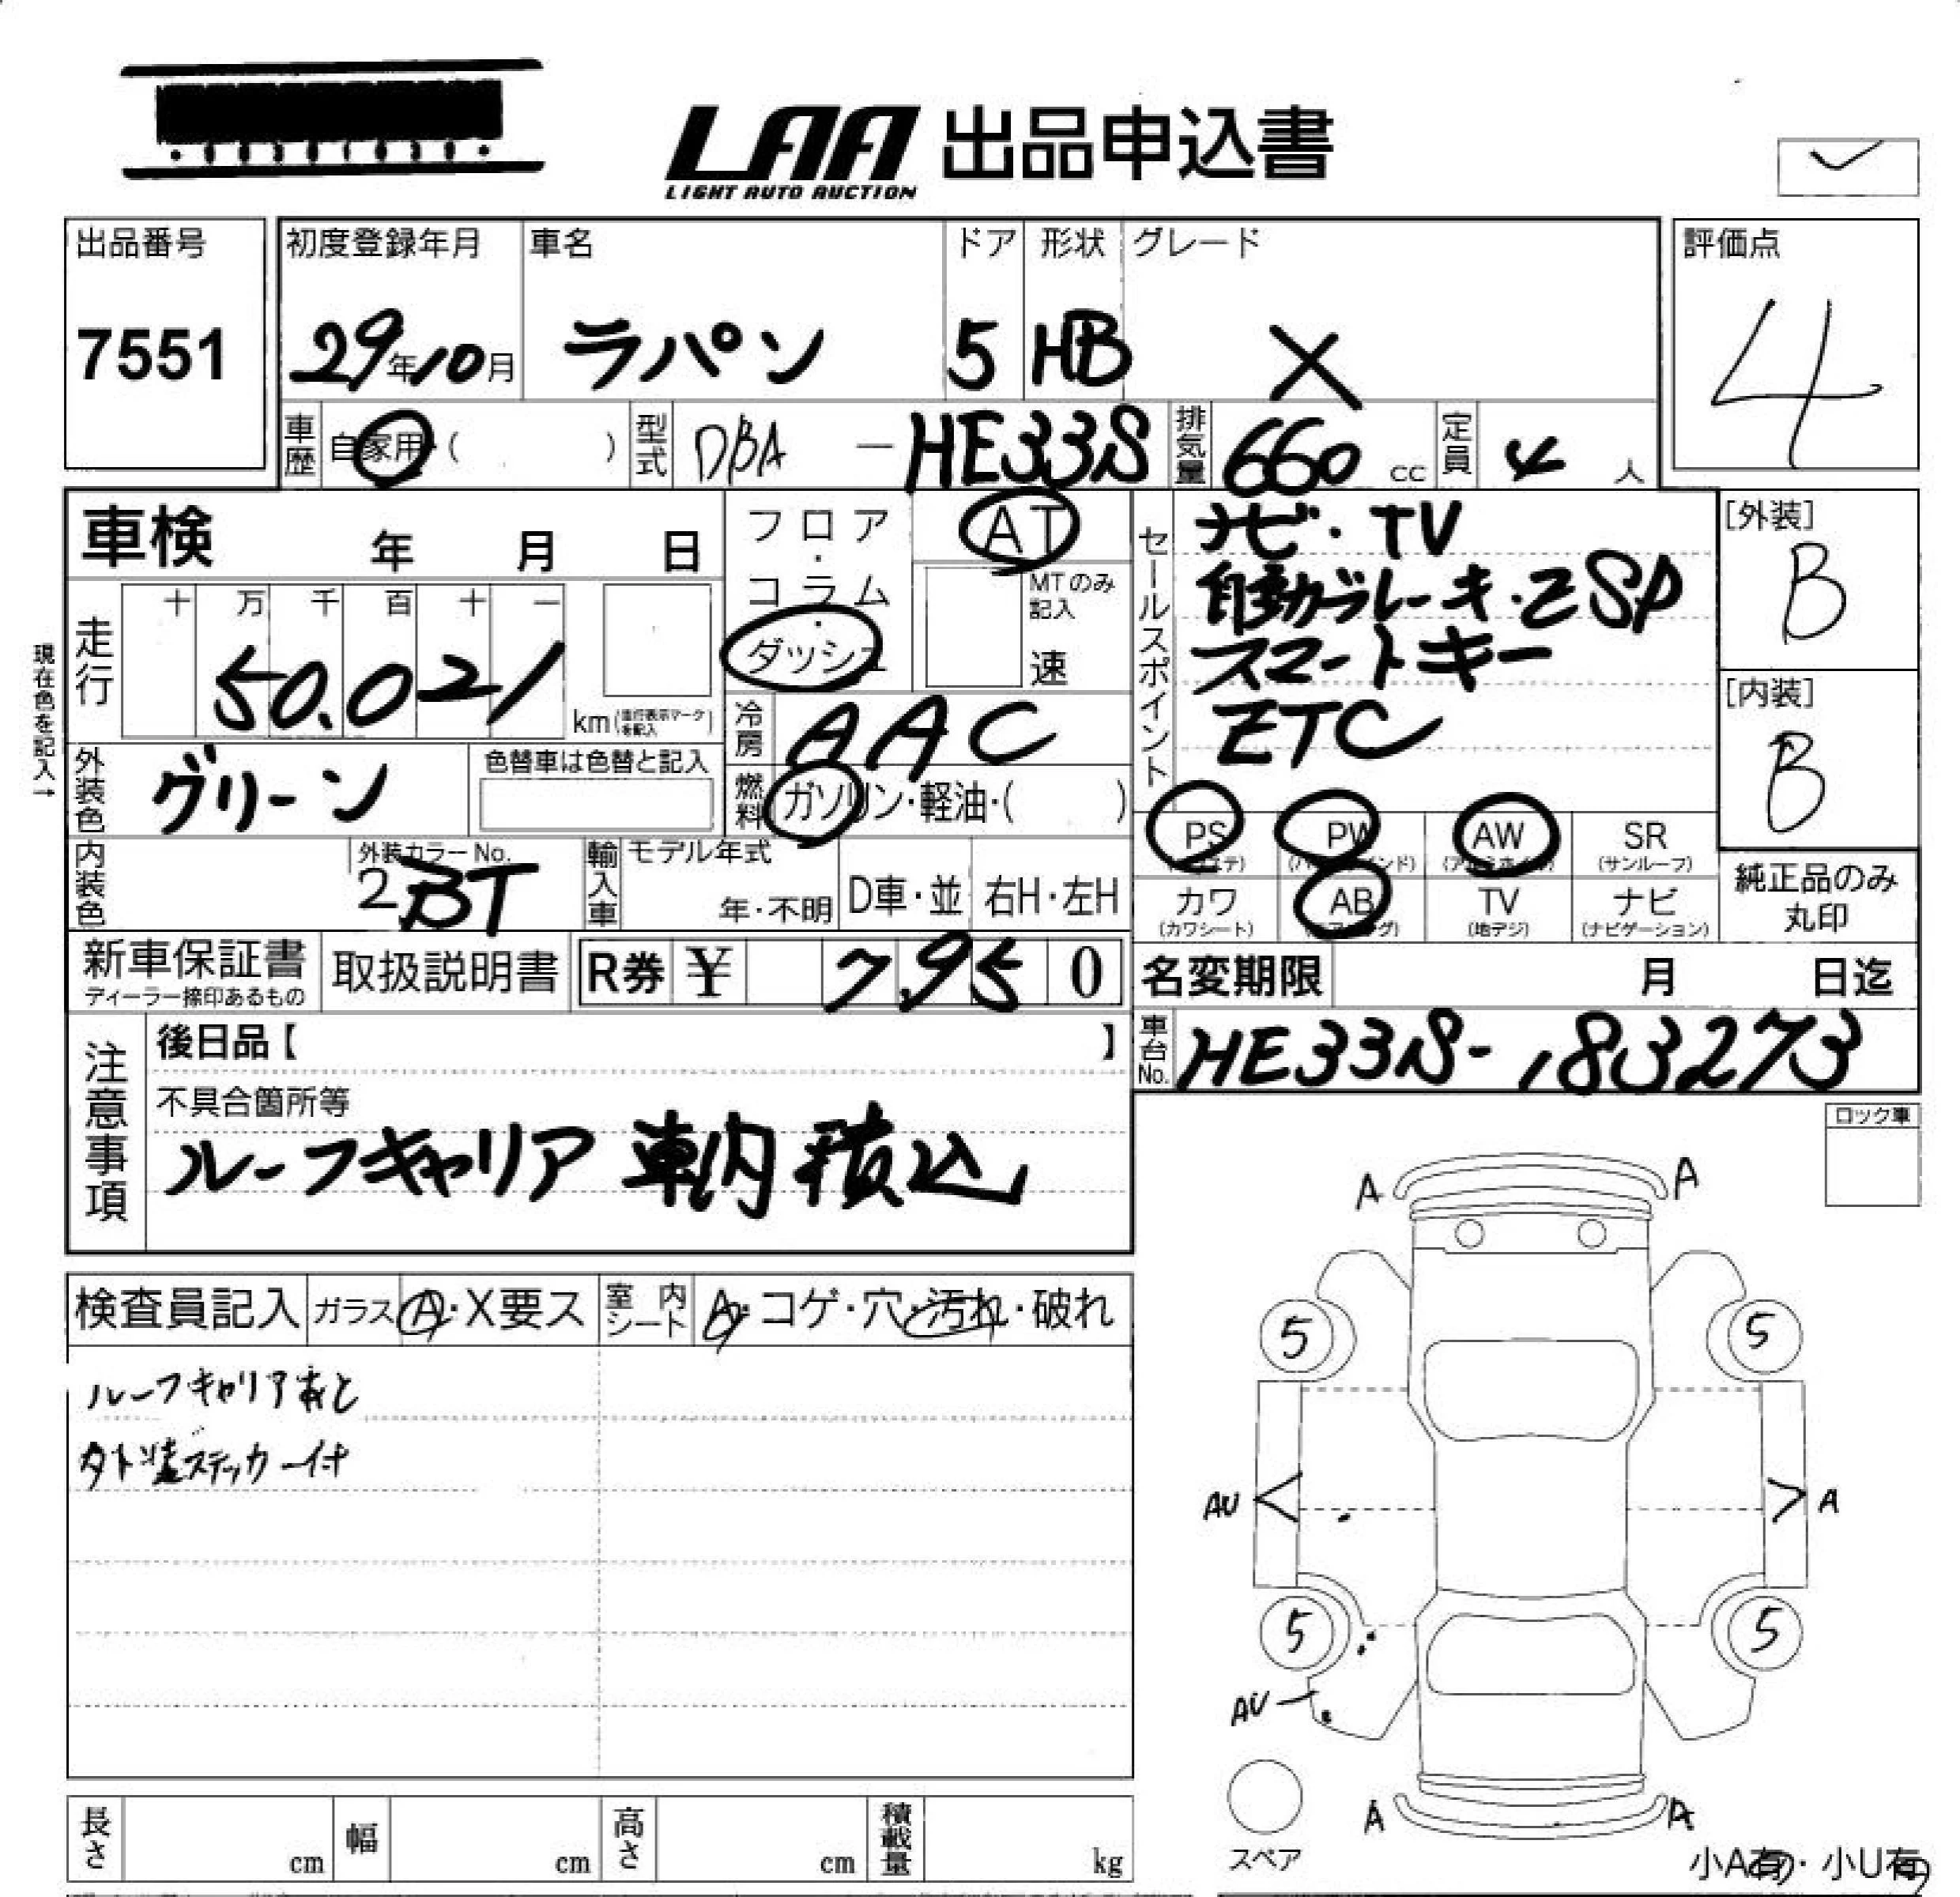 LAA 出品申込書
LIGHT AUTO AUCTION
出品番号
7551
初度登録年月
29年10月
車名
ラパン
ドア
5
形状
HB
グレード
X
評価点
4
車歴 自家用・( )
型式 DBA-HE33S
排気量 660cc
定員 4人
車検 年 月 日
走行
十 万 千 百 十 一
50.021
km(走行表示マークを記入)
現在色を記入→
フロア・コラム・ダッシュ
AT
MTのみ記入
速
冷房 AAC
燃料 ガソリン・軽油・( )
外装色 グリーン
色替車は色替と記入
内装色
外装カラーNo.
2BT
輸入車
モデル年式
年・不明
D車・並
右H・左H
セールスポイント
ナビ・TV
自動ブレーキ・ESP
スマートキー
ETC
[外装]
B
[内装]
B
PS PW AW SR
(サンルーフ)
カワ AB TV ナビ
(カワシート) (地デジ) (ナビゲーション)
純正品のみ
丸印
新車保証書
ディーラー捺印あるもの
取扱説明書
R券 ¥ 7,950
名変期限 月 日迄
車台No. HE33S-183273
注意事項
後日品【 】
不具合箇所等
ルーフキャリア 車内積込
ロック車
検査員記入
ガラス A・X要ス
室内シート A・コゲ・穴・汚れ・破れ
ルーフキャリアあと
外装ステッカー付
A A
5 5
AU A
5 5
AU
A A
スペア
小A有・小U有
長さ cm
幅 cm
高さ cm
積載量 kg